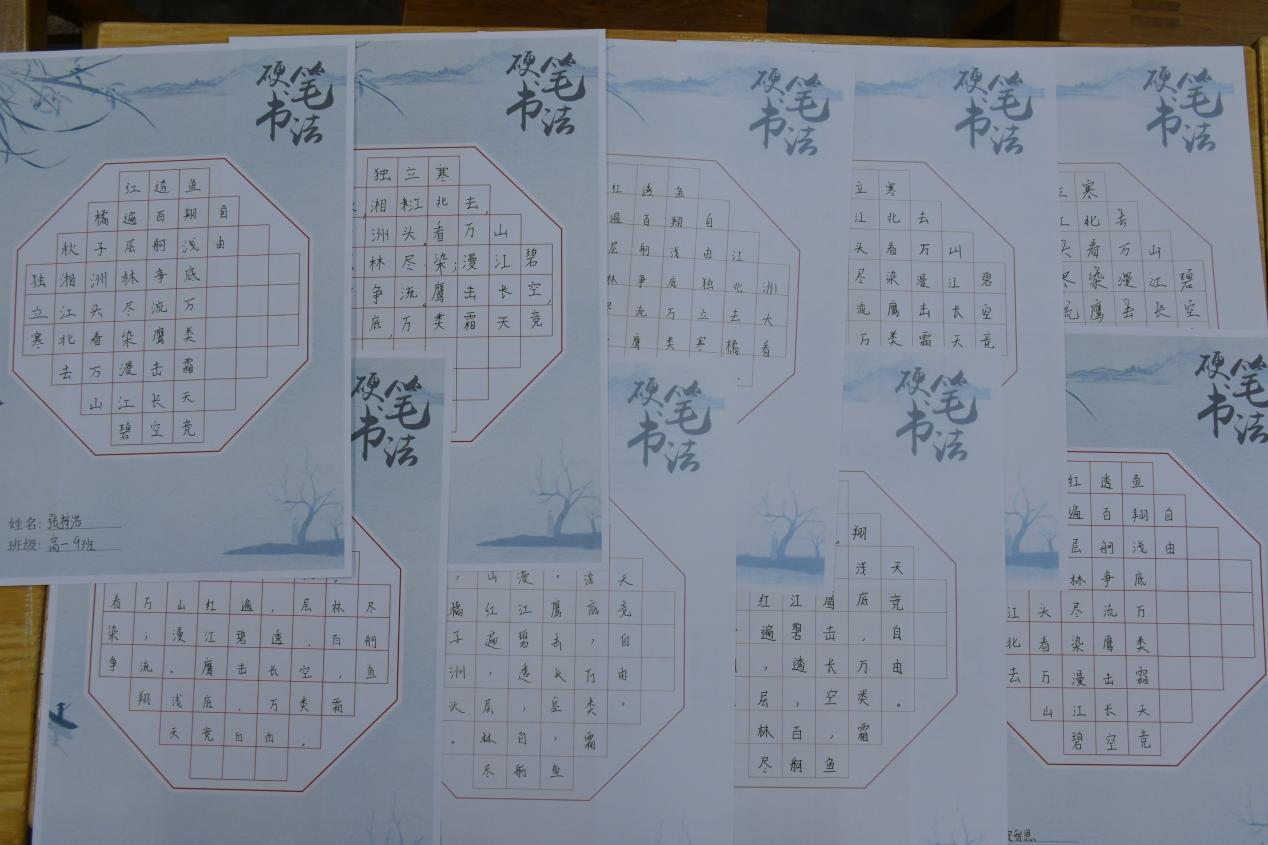 硬笔书法
红透鱼
橘遍百翔自
秋子层舸浅由
独湘洲林争底
立江头尽流万
寒北看染鹰类
去万漫击霜
山江长天
碧空竞
姓名:
班级: 高一9班
硬笔书法
独立寒
湘江北去,
洲头,看万山
林尽染;漫江碧
争流。鹰击长空,
底,万类霜天竞
硬笔书法
红透鱼
遍百翔自
层舸浅由江
林争底独北洲
流万立去头
鹰类寒橘看
硬笔书法
立寒
江北去
头看万山
尽染漫江碧
流鹰击长空
万类霜天竞
硬笔书法
寒
江北去
头看万山
尽染漫江碧
流鹰击长空
硬笔书法
看万山红遍,层林尽
染;漫江碧透,百舸
争流。鹰击长空,鱼
翔浅底,万类霜
天竞自由。
硬笔书法
,山漫,浅天
橘红江鹰底竞
子遍碧击,自
洲,透长万由
头层,空类。
。林百,霜
尽舸鱼
硬笔书法
翔
浅天
红江鹰底竞
遍碧击,自
,透长万由
层,空类。
林百,霜
尽舸鱼
硬笔书法
红透鱼
遍百翔自
层舸浅由
林争底
江头尽流万
北看染鹰类
去万漫击霜
山江长天
碧空竞